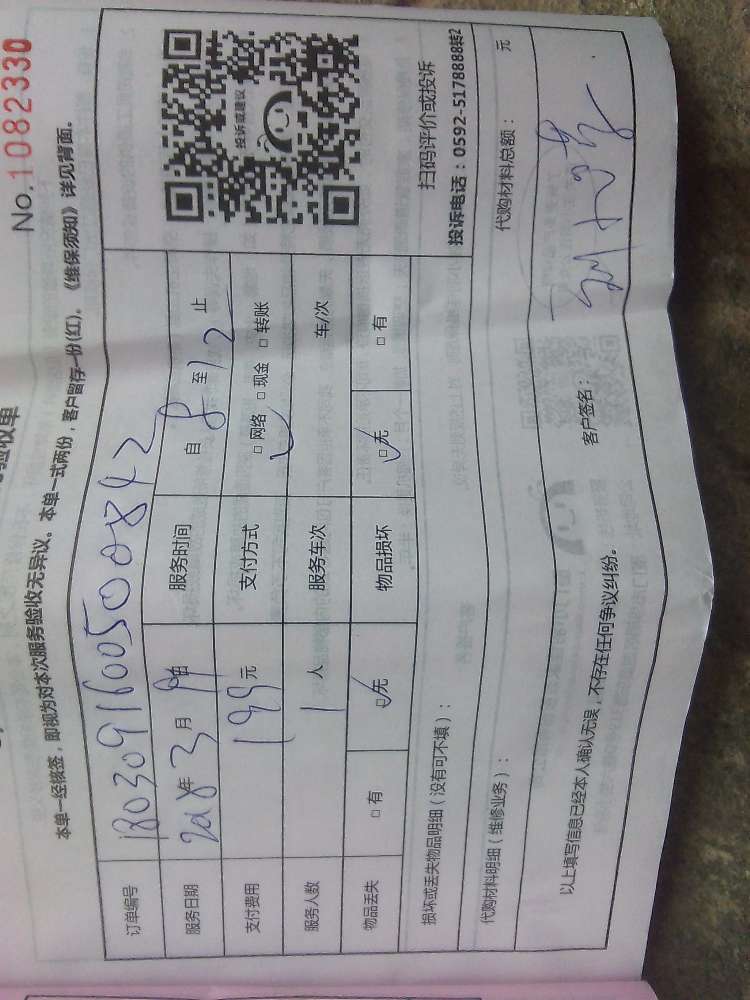 验收单
No.1082330
本单一经核签，即视为对本次服务验收无异议。本单一式两份，客户留存一份(红)。《维保须知》详见背面。
订单编号 180309160050084 2
服务日期 2018年3月9日 服务时间 自8至12止
支付费用 199元 支付方式 □网络 □现金 □转账
服务人数 1人 服务车次 车/次
物品丢失 □有 □无 物品损坏 □无 □有
投诉或建议
扫码评价或投诉
投诉电话：0592-5178888转2
损坏或丢失物品明细（没有可不填）：
代购材料明细（维修业务）： 代购材料总额： 元
以上填写信息已经本人确认无误，不存在任何争议纠纷。
客户签名：